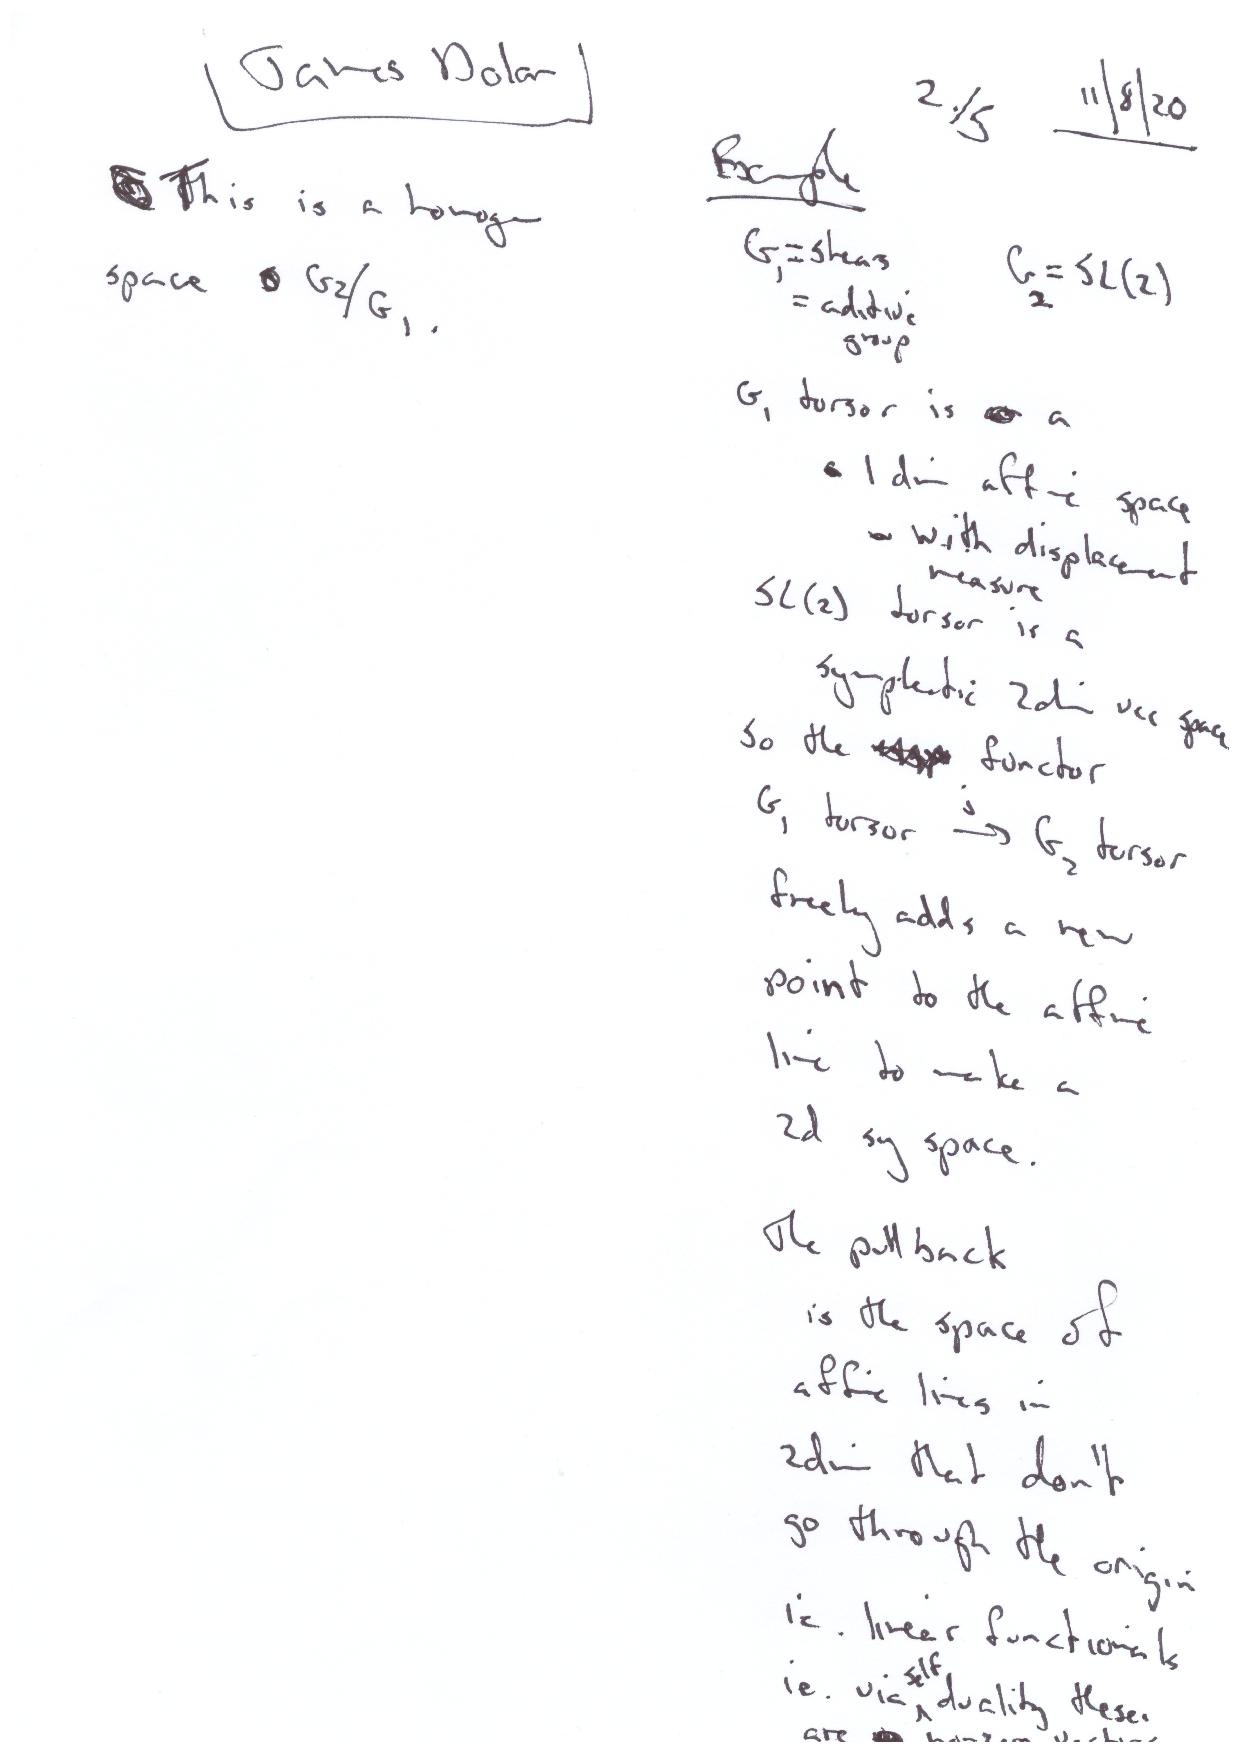 James Dolan
2./5 11/8/20
This is a homogen
space G2/G1.
Example
G1 = shears
= aditive
group
G2 = SL(2)
G1 torsor is a
1 dim affine space
- with displacement
measure
SL(2) torsor is a
symplectic 2dim vec space
so the functor
G1 torsor →^i G2 torsor
freely adds a new
point to the affine
line to make a
2d sy space.
The pullback
is the space of
affine lines in
2dim that don't
go through the origin
ie. linear functionals
ie. via self duality these
are nonzero vectors